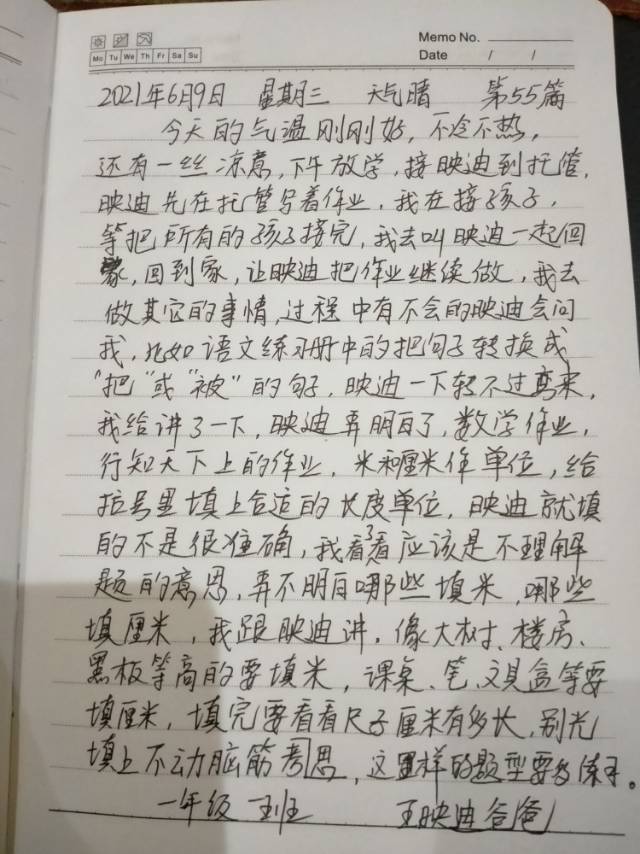 Memo No.
Mo Tu We Th Fr Sa Su
Date / /
2021年6月9日 星期三 天气晴 第55篇
今天的气温刚刚好，不冷不热，
还有一丝凉意，下午放学，接映迪到托管，
映迪先在托管写着作业，我在接孩子，
等把所有的孩子接完，我去叫映迪一起回
家，回到家，让映迪把作业继续做，我去
做其它的事情，过程中有不会的映迪会问
我，比如语文练习册中的把句子转换成
“把”或“被”的句子，映迪一下转不过弯来，
我给讲了一下，映迪弄明白了，数学作业，
行知天下上的作业，米和厘米作单位，给
括号里填上合适的长度单位，映迪就填
的不是很准确，我看了看应该是不理解
题的意思，弄不明白哪些填米，哪些
填厘米，我跟映迪讲，像大树、楼房、
黑板等高的要填米，课桌、笔、文具盒等要
填厘米，填完要看看尺子厘米有多长，别光
填上不动脑筋思，这样的题型要多练习。
一年级 班 王映迪爸爸